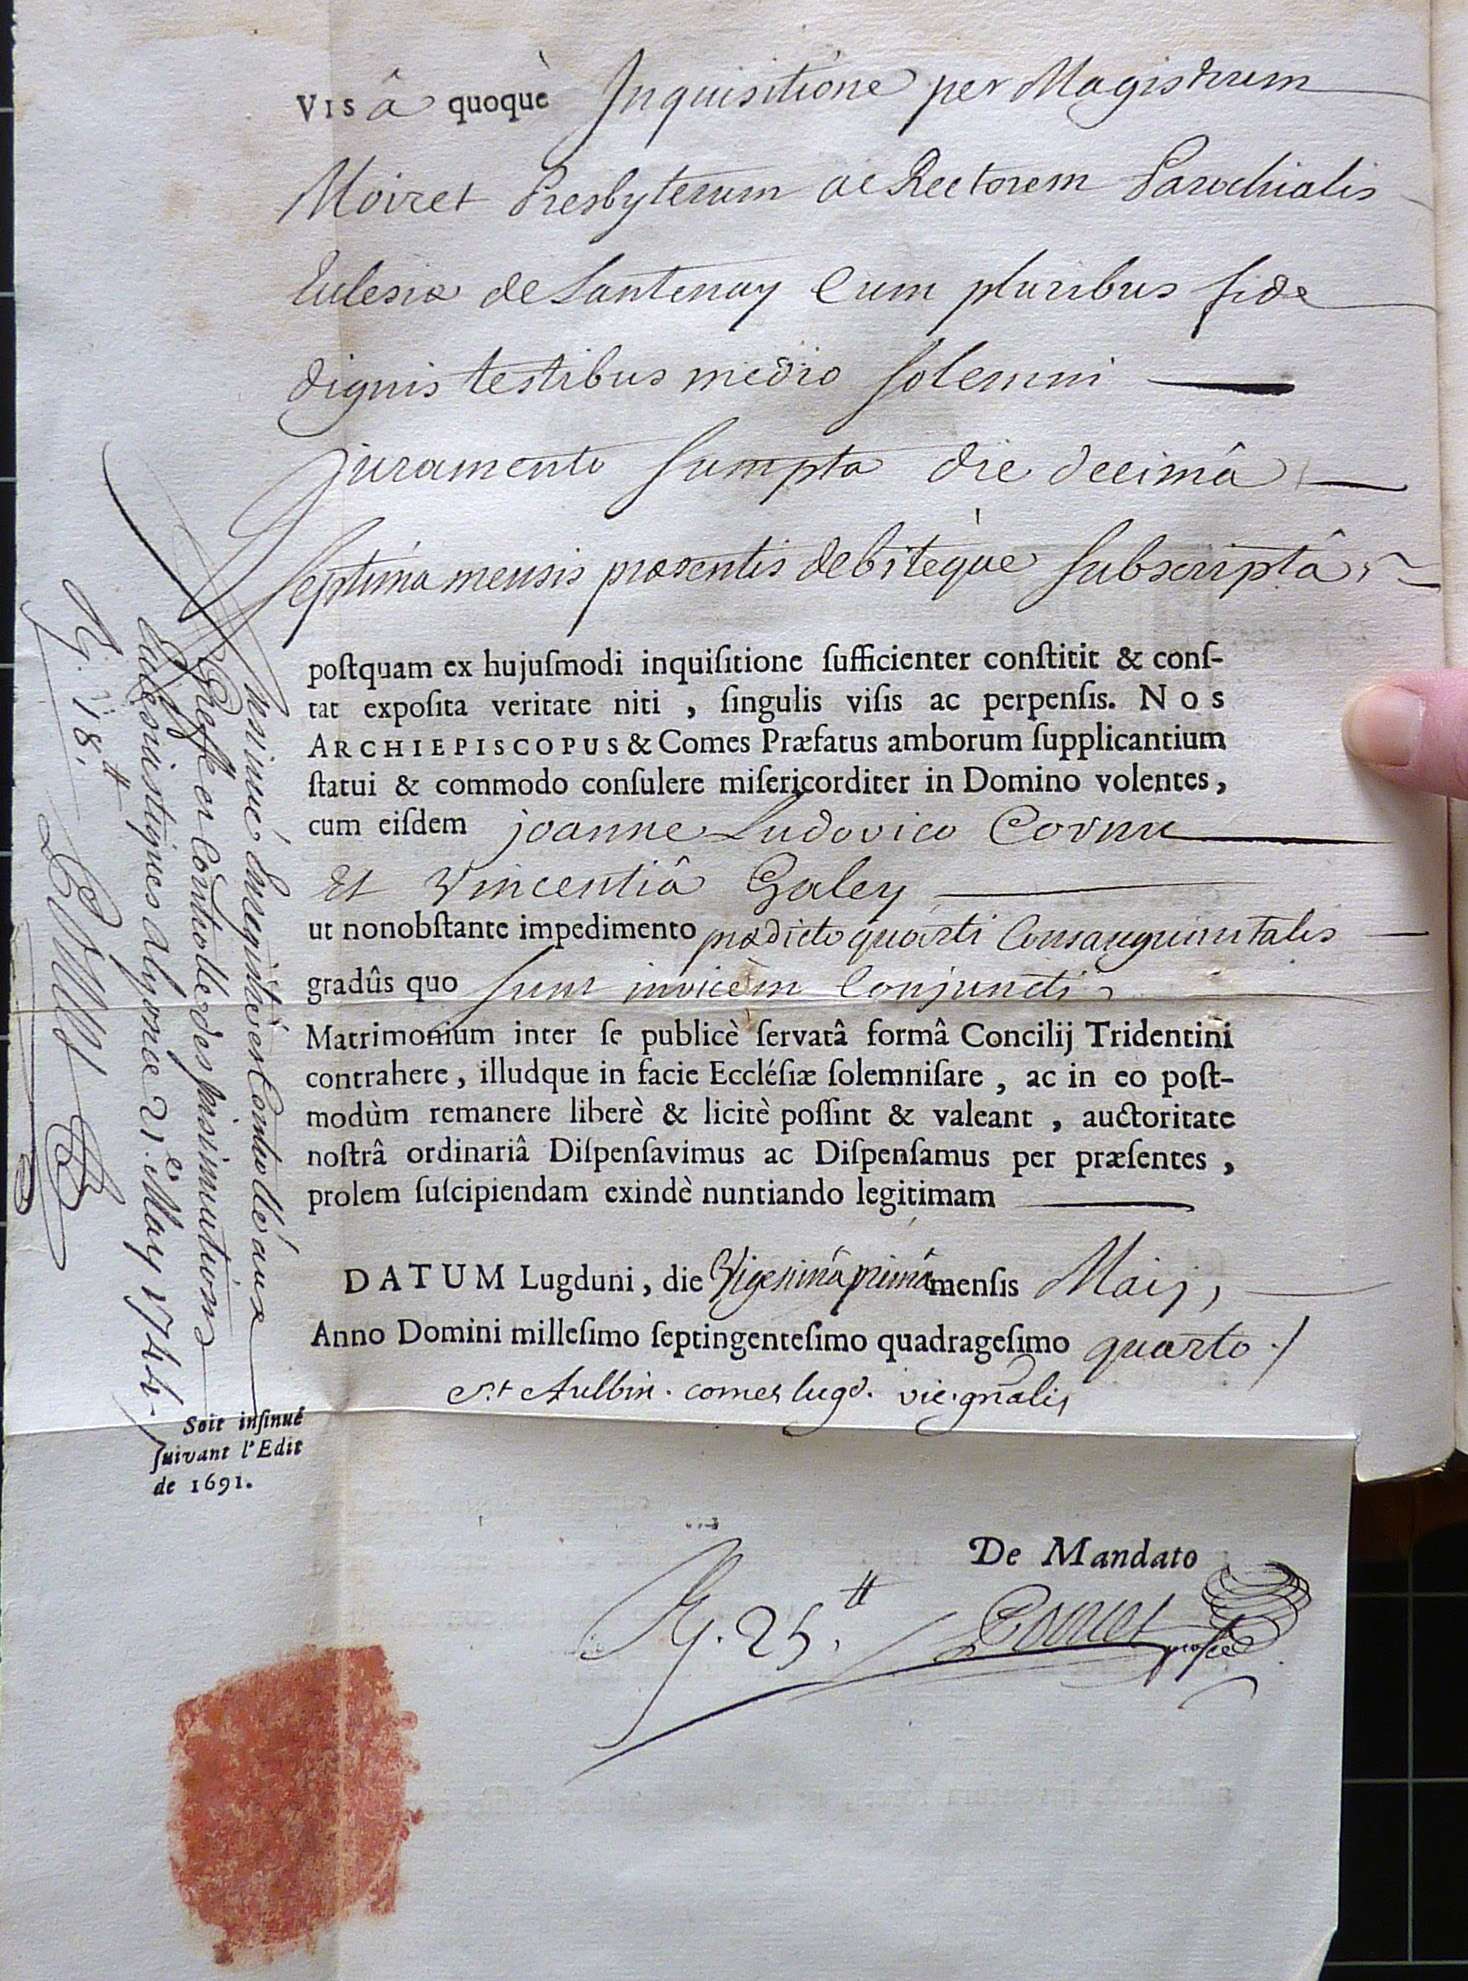 VISâ quoquè Inquisitione per Magistrum
Moiret Presbyterum ac Rectorem Parochialis
Eclesiæ de Santenay Cum pluribus fide
dignis testibus medio solemni
juramento sumpta die decimâ
septima mensis præsentis debitèque subscriptâ,
poſtquam ex hujuſmodi inquiſitione ſufficienter conſtitit & conſ-
tat expoſita veritate niti , ſingulis viſis ac perpenſis. NOS
ARCHIEPISCOPUS & Comes Præfatus amborum ſupplicantium
ſtatui & commodo conſulere miſericorditer in Domino volentes,
cum eiſdem joanne Ludovico Cornu
Et Vincentiâ Galey
ut nonobſtante impedimento prædicto quarti Consanguinitatis
gradûs quo sunt invicèm Conjuncti,
Matrimonium inter ſe publicè ſervatâ formâ Concilij Tridentini
contrahere, illudque in facie Eccléſiæ ſolemniſare, ac in eo poſt-
modùm remanere liberè & licitè poſſint & valeant , auctoritate
noſtrâ ordinariâ Diſpenſavimus ac Diſpenſamus per præſentes ,
prolem ſuſcipiendam exindè nuntiando legitimam
DATUM Lugduni, die Vigesimâ primâ menſis Maij,
Anno Domini milleſimo ſeptingenteſimo quadrageſimo quarto ./
St Aulbin. comes lugd. vic. gnalis
insinué Enregistré et Controllé aux
Greffe et Controlle des insinuations
Eclesiastiques a Lyon ce 21.e May 1744.
R. 18.₶
Soit inſinué
ſuivant l'Edit
de 1691.
De Mandato
R. 25.₶